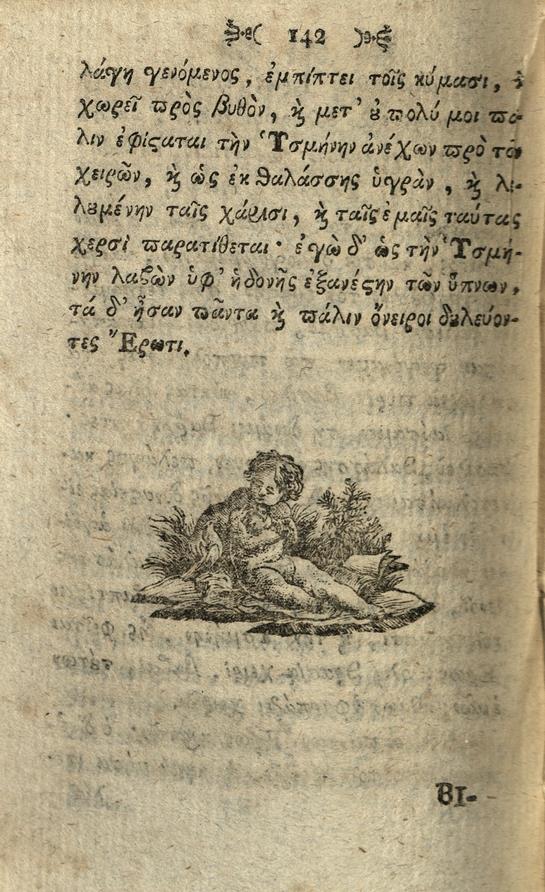 142
λάγη γενόμενος, ἐμπίπτει τοῖς κύμασι, ϗ̀
χωρεῖ πρὸς βυθὸν, ϗ̀ μετ' ȣ̓ πολύ μοι πά-
λιν ἐφίϛαται τὴν Ὑσμήνην ἀνέχων πρὸ τῶν
χειρῶν, ϗ̀ ὡς ἐκ θαλάσσης ὑγρὰν, ϗ̀ λε-
λȣμένην ταῖς χάρισι, ϗ̀ ταῖς ἐμαῖς ταύτας
χερσὶ παρατίθεται· ἐγὼ δ' ὡς τὴν Ὑσμή-
νην λαβὼν ὑφ' ἡδονῆς ἐξανέϛην τῶν ὕπνων,
τά δ' ἦσαν πάντα ϗ̀ πάλιν ὄνειροι δȣλεύον-
τες Ἔρωτι.
ΒΙ-